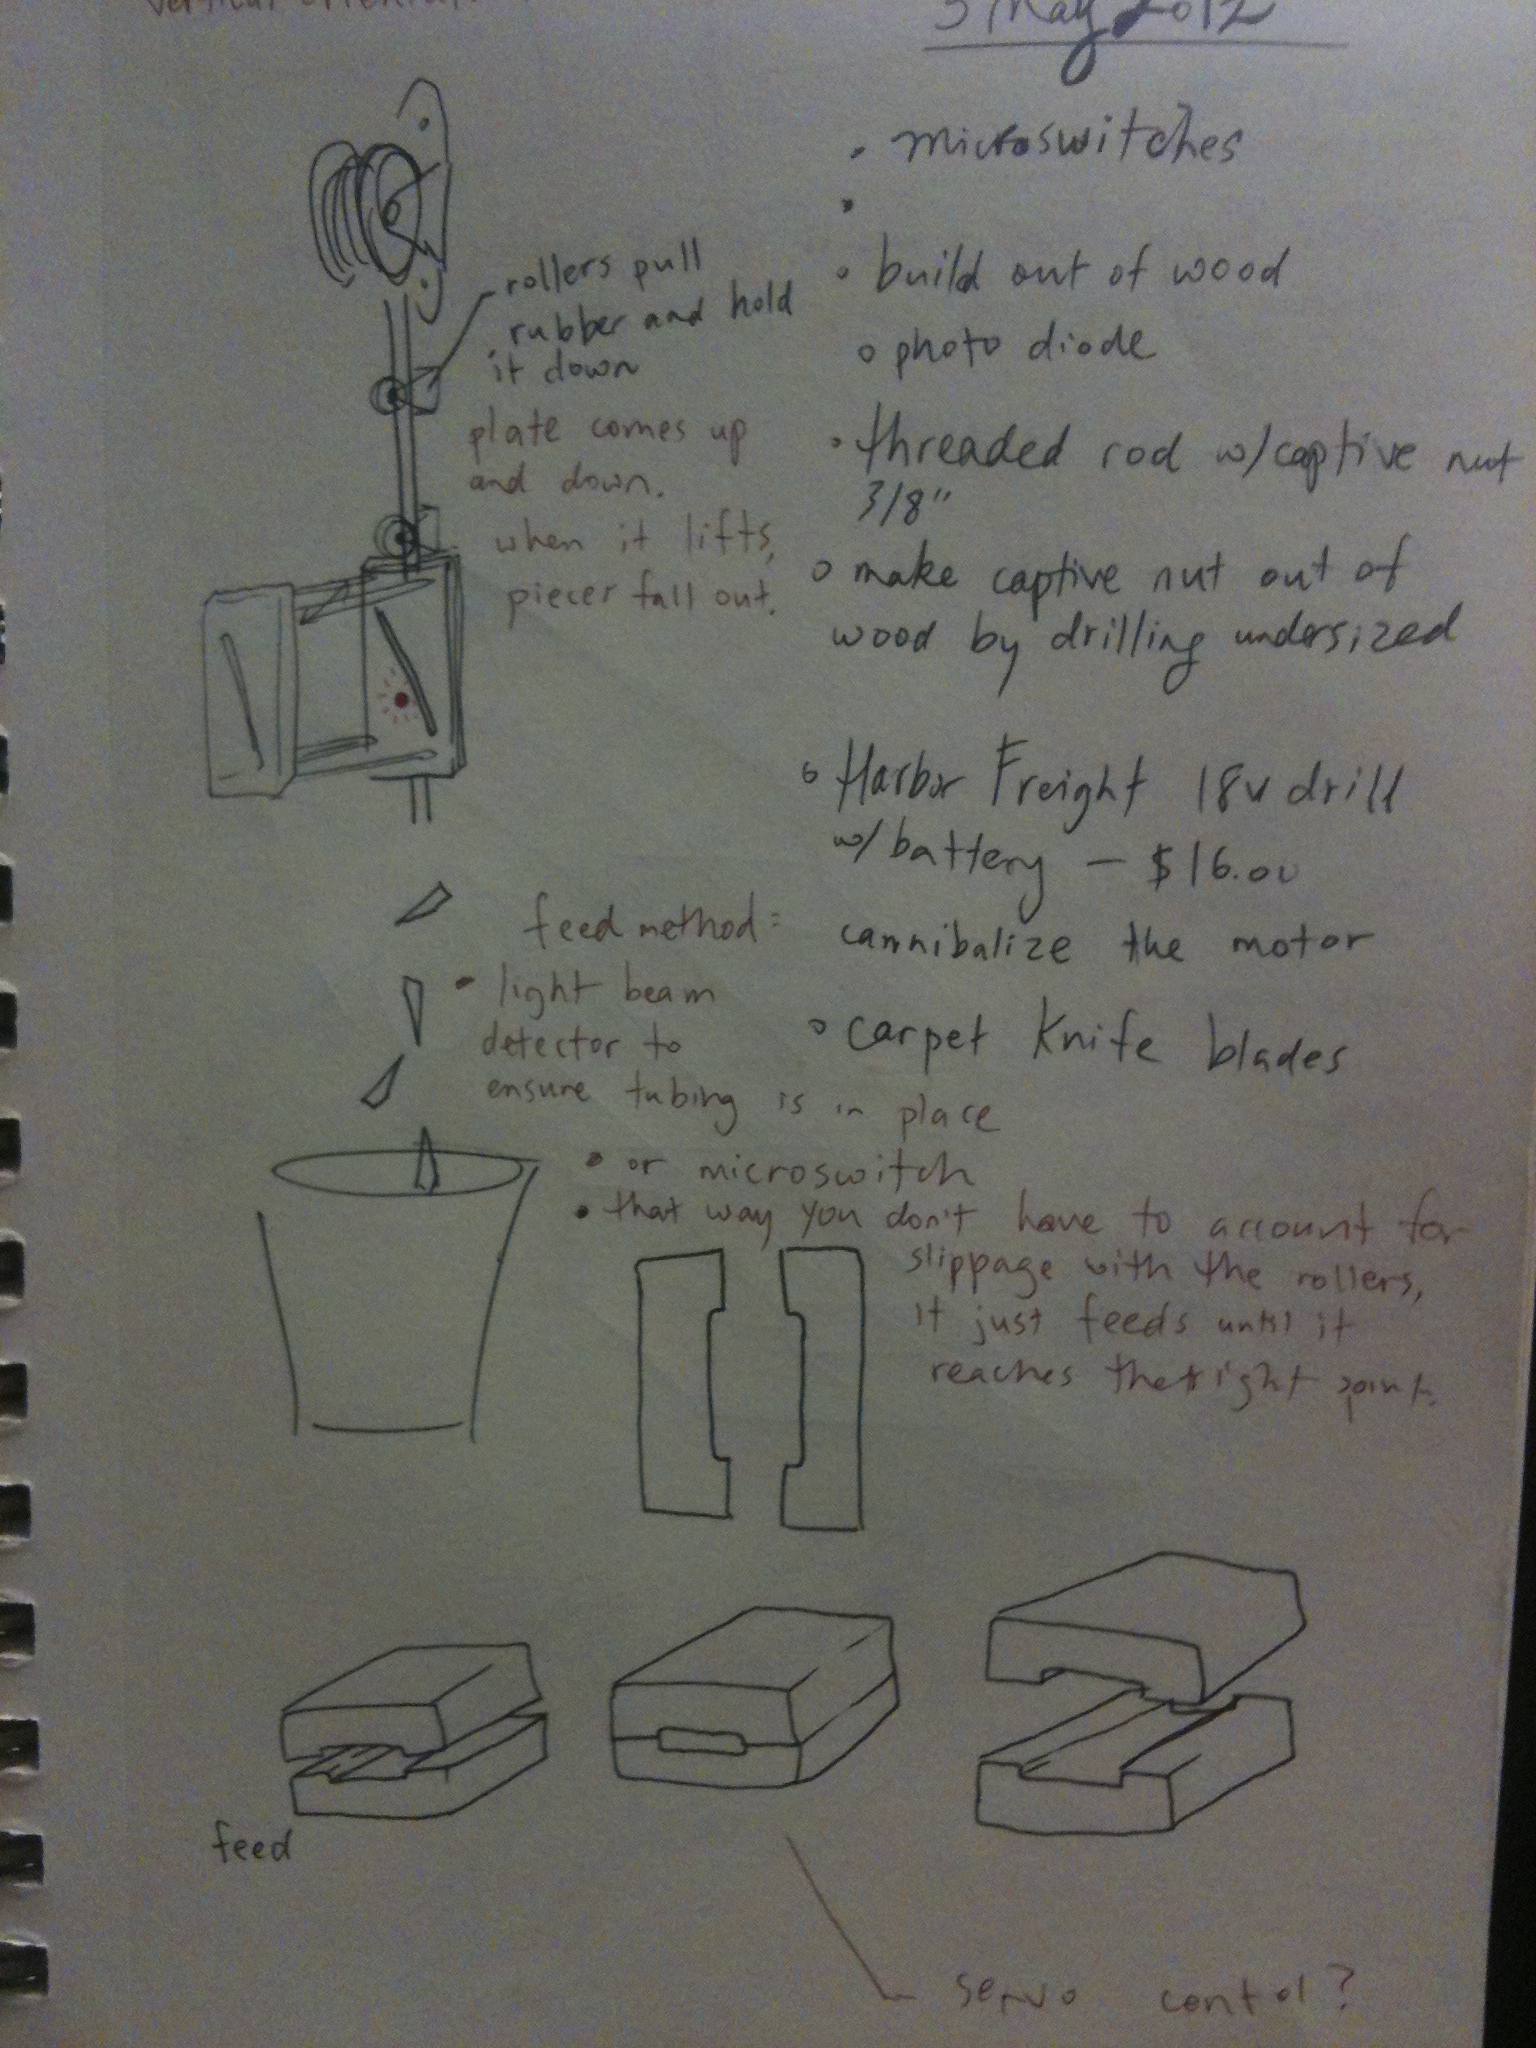 vertical orientat
3 May 2012
• microswitches
•
• build out of wood
o photo diode
• threaded rod w/captive nut
3/8"
o make captive nut out of
wood by drilling undersized
o Harbor Freight 18v drill
w/battery — $16.00
cannibalize the motor
o carpet knife blades
rollers pull
rubber and hold
it down
plate comes up
and down.
when it lifts,
piecer fall out.
feed method:
• light beam
detector to
ensure tubing is in place
• or microswitch
• that way you don't have to account for
slippage with the rollers,
it just feeds until it
reaches the right point.
feed
servo contol?